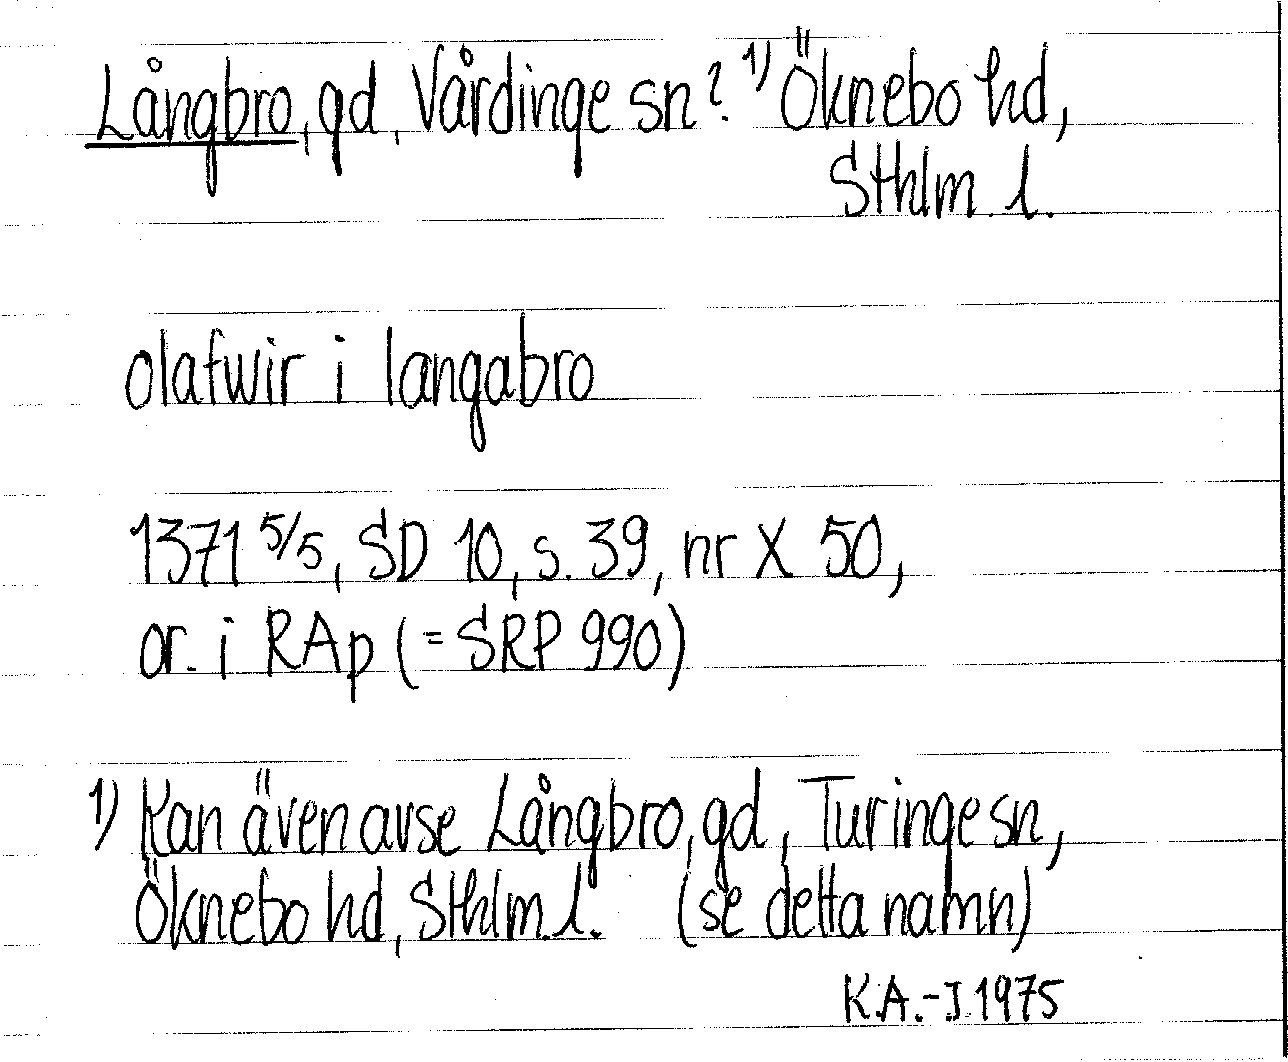 Långbro, gd, Vårdinge sn? 1) Öknebo hd,
Sthlm. l.
olafwir i langabro
1371 5/5, SD 10, s. 39, nr X 50,
or. i RAp (= SRP 990)
1) Kan även avse Långbro, gd, Turinge sn,
Öknebo hd, Sthlm. l. (se detta namn)
K.A.-J. 1975